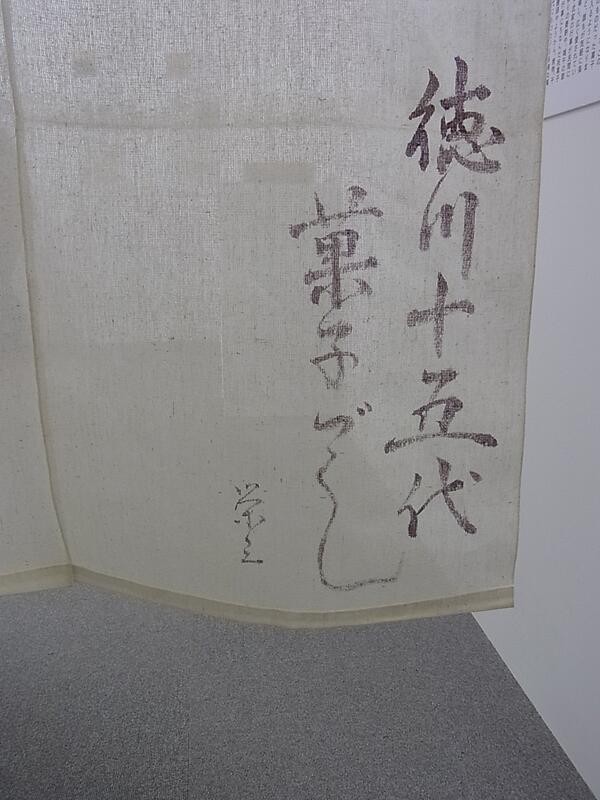 徳川十五代
菓子づくし
栄三